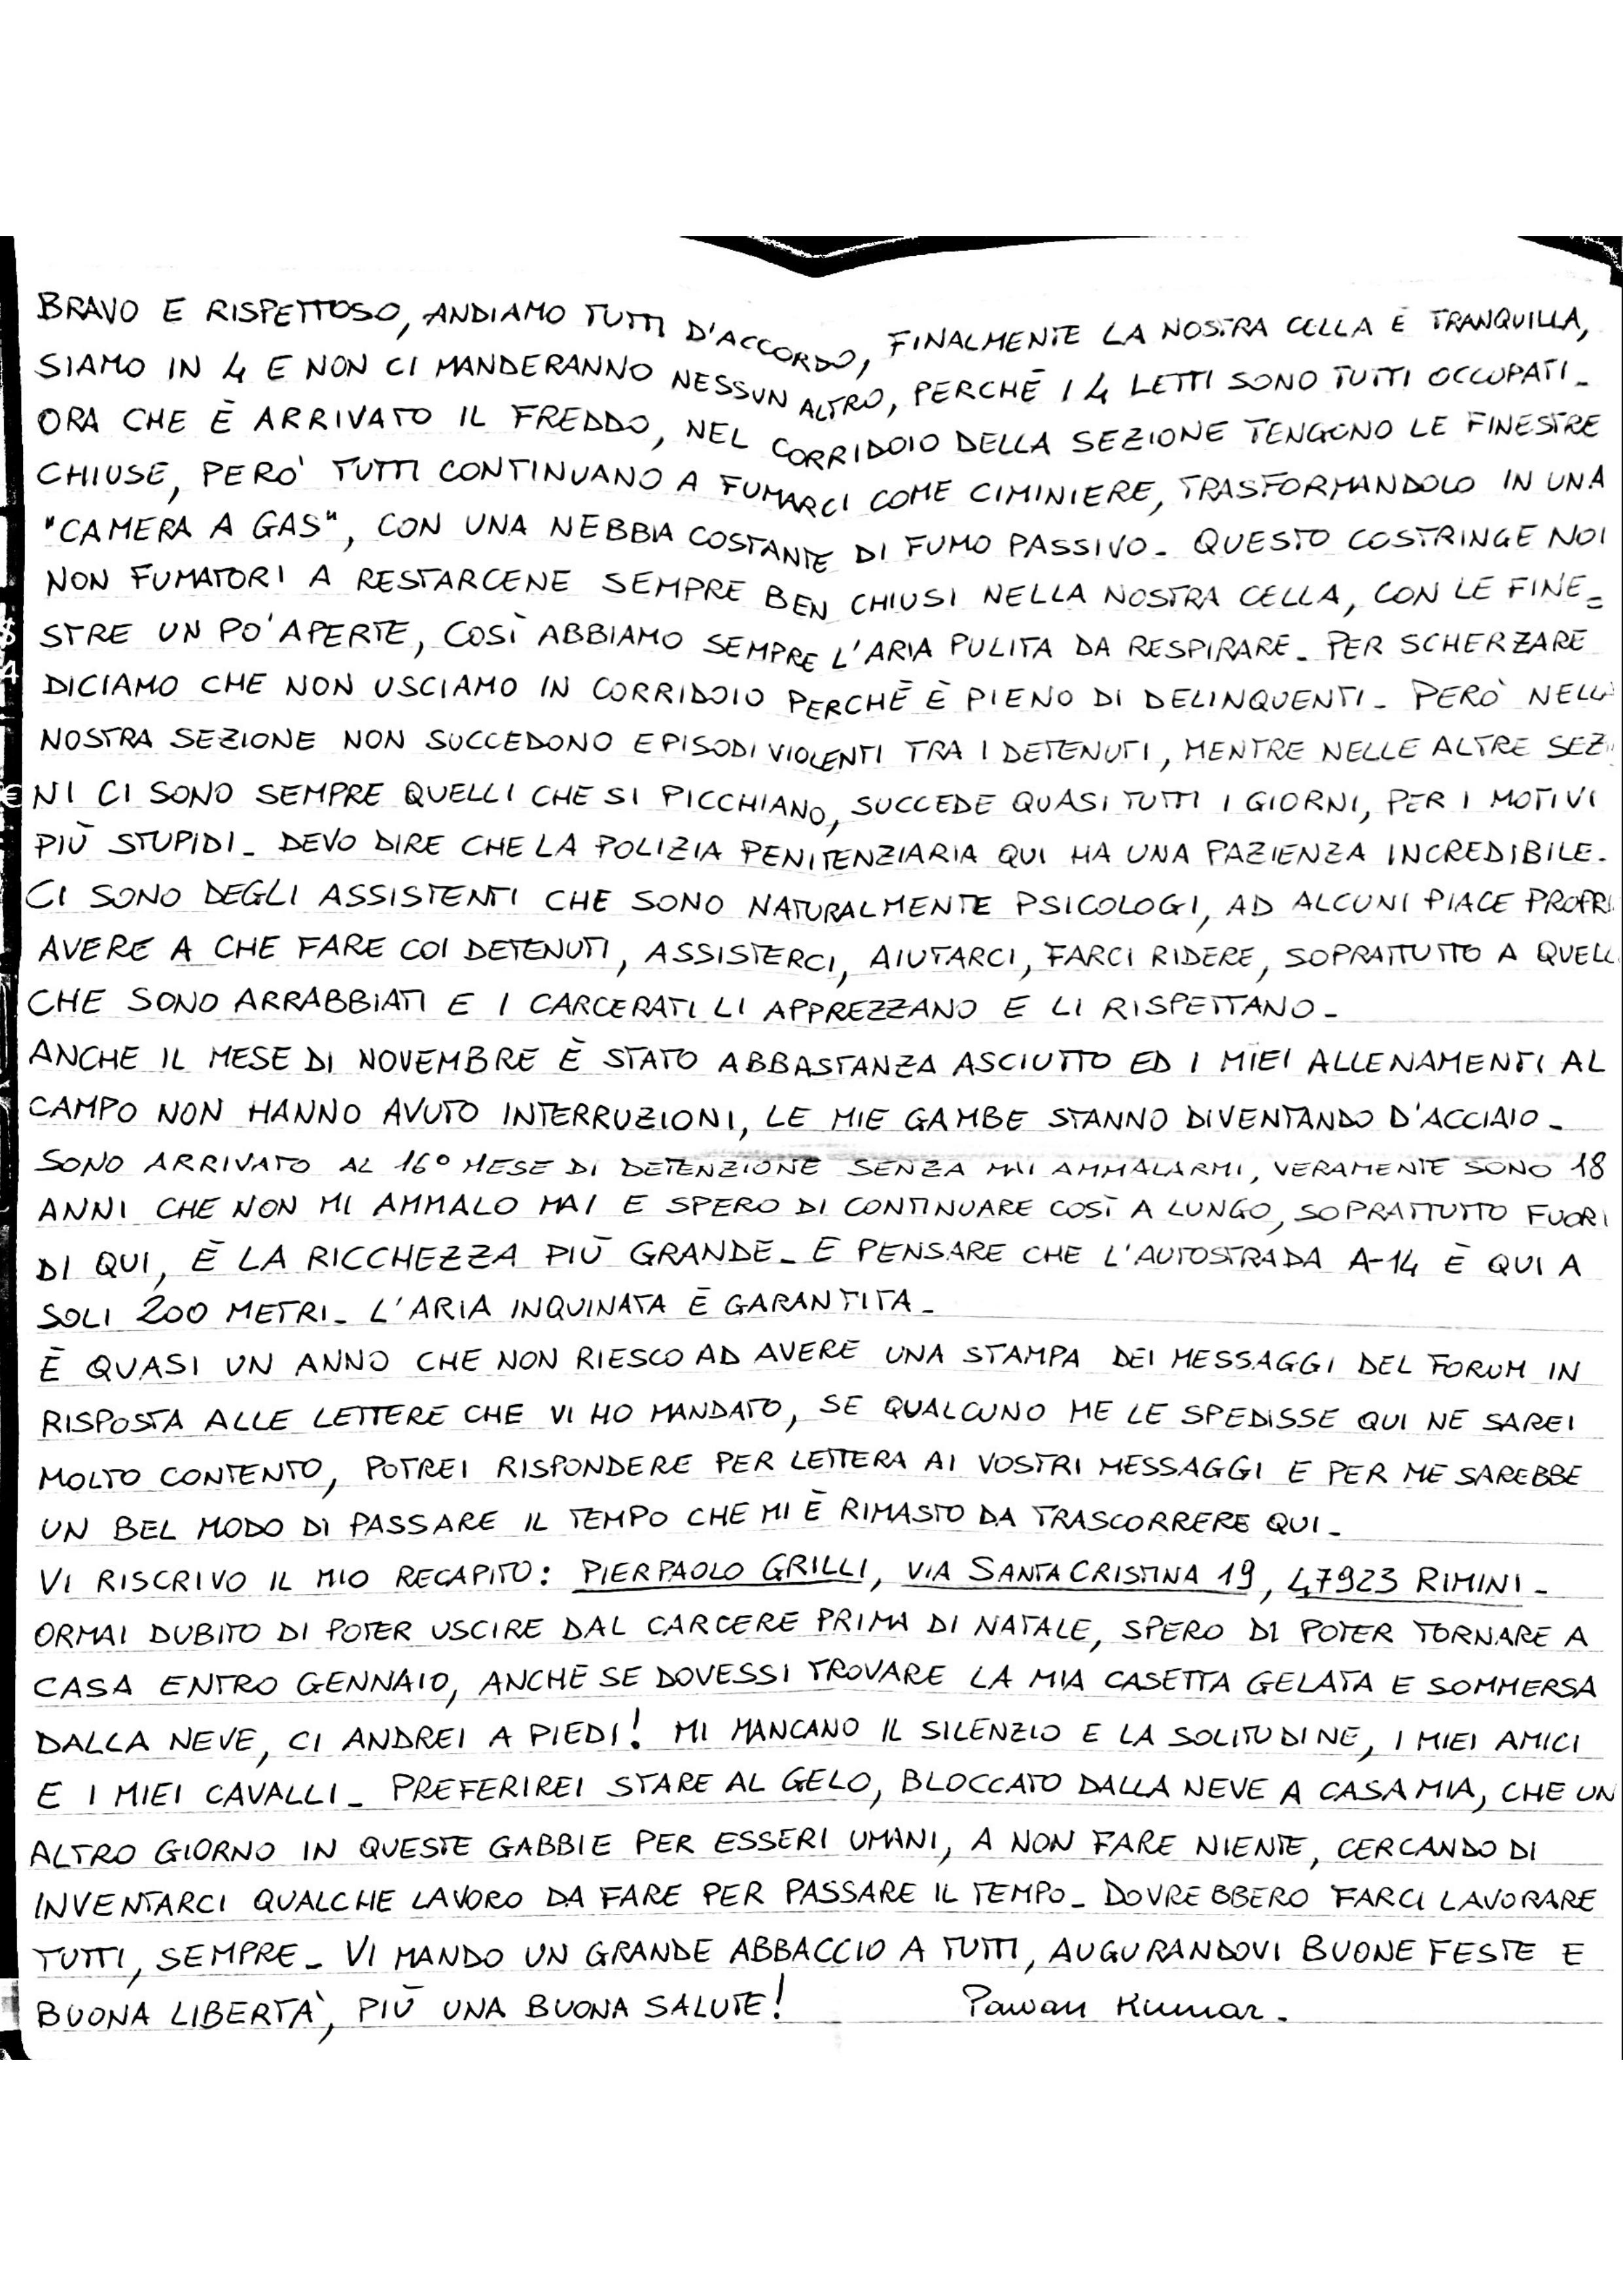 BRAVO E RISPETTOSO, ANDIAMO TUTTI D'ACCORDO, FINALMENTE LA NOSTRA CELLA È TRANQUILLA,
SIAMO IN 4 E NON CI MANDERANNO NESSUN ALTRO, PERCHÉ I 4 LETTI SONO TUTTI OCCUPATI_
ORA CHE È ARRIVATO IL FREDDO, NEL CORRIDOIO DELLA SEZIONE TENGONO LE FINESTRE
CHIUSE, PERÒ TUTTI CONTINUANO A FUMARCI COME CIMINIERE, TRASFORMANDOLO IN UNA
"CAMERA A GAS", CON UNA NEBBIA COSTANTE DI FUMO PASSIVO_ QUESTO COSTRINGE NOI
NON FUMATORI A RESTARCENE SEMPRE BEN CHIUSI NELLA NOSTRA CELLA, CON LE FINE=
STRE UN PO' APERTE, COSÌ ABBIAMO SEMPRE L'ARIA PULITA DA RESPIRARE_ PER SCHERZARE
DICIAMO CHE NON USCIAMO IN CORRIDOIO PERCHÉ È PIENO DI DELINQUENTI_ PERÒ NELLA
NOSTRA SEZIONE NON SUCCEDONO EPISODI VIOLENTI TRA I DETENUTI, MENTRE NELLE ALTRE SEZI
NI CI SONO SEMPRE QUELLI CHE SI PICCHIANO, SUCCEDE QUASI TUTTI I GIORNI, PER I MOTIVI
PIÙ STUPIDI_ DEVO DIRE CHE LA POLIZIA PENITENZIARIA QUI HA UNA PAZIENZA INCREDIBILE.
CI SONO DEGLI ASSISTENTI CHE SONO NATURALMENTE PSICOLOGI, AD ALCUNI PIACE PROPRI
AVERE A CHE FARE COI DETENUTI, ASSISTERCI, AIUTARCI, FARCI RIDERE, SOPRATTUTTO A QUELL
CHE SONO ARRABBIATI E I CARCERATI LI APPREZZANO E LI RISPETTANO_
ANCHE IL MESE DI NOVEMBRE È STATO ABBASTANZA ASCIUTTO ED I MIEI ALLENAMENTI AL
CAMPO NON HANNO AVUTO INTERRUZIONI, LE MIE GAMBE STANNO DIVENTANDO D'ACCIAIO_
SONO ARRIVATO AL 16° MESE DI DETENZIONE SENZA MAI AMMALARMI, VERAMENTE SONO 18
ANNI CHE NON MI AMMALO MAI E SPERO DI CONTINUARE COSÌ A LUNGO, SOPRATTUTTO FUORI
DI QUI, È LA RICCHEZZA PIÙ GRANDE_ E PENSARE CHE L'AUTOSTRADA A-14 È QUI A
SOLI 200 METRI_ L'ARIA INQUINATA È GARANTITA_
È QUASI UN ANNO CHE NON RIESCO AD AVERE UNA STAMPA DEI MESSAGGI DEL FORUM IN
RISPOSTA ALLE LETTERE CHE VI HO MANDATO, SE QUALCUNO ME LE SPEDISSE QUI NE SAREI
MOLTO CONTENTO, POTREI RISPONDERE PER LETTERA AI VOSTRI MESSAGGI E PER ME SAREBBE
UN BEL MODO DI PASSARE IL TEMPO CHE MI È RIMASTO DA TRASCORRERE QUI_
VI RISCRIVO IL MIO RECAPITO: PIERPAOLO GRILLI, VIA SANTA CRISTINA 19, 47923 RIMINI_
ORMAI DUBITO DI POTER USCIRE DAL CARCERE PRIMA DI NATALE, SPERO DI POTER TORNARE A
CASA ENTRO GENNAIO, ANCHE SE DOVESSI TROVARE LA MIA CASETTA GELATA E SOMMERSA
DALLA NEVE, CI ANDREI A PIEDI! MI MANCANO IL SILENZIO E LA SOLITUDINE, I MIEI AMICI
E I MIEI CAVALLI_ PREFERIREI STARE AL GELO, BLOCCATO DALLA NEVE A CASA MIA, CHE UN
ALTRO GIORNO IN QUESTE GABBIE PER ESSERI UMANI, A NON FARE NIENTE, CERCANDO DI
INVENTARCI QUALCHE LAVORO DA FARE PER PASSARE IL TEMPO_ DOVREBBERO FARCI LAVORARE
TUTTI, SEMPRE_ VI MANDO UN GRANDE ABBACCIO A TUTTI, AUGURANDOVI BUONE FESTE E
BUONA LIBERTÀ, PIÙ UNA BUONA SALUTE! Pawan Kumar.